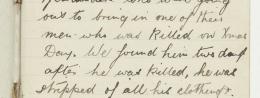 who was going
out to bring in one of their
men who was killed on Xmas
Day. We found him two days
after he was killed, he was
stripped of all his clothing.